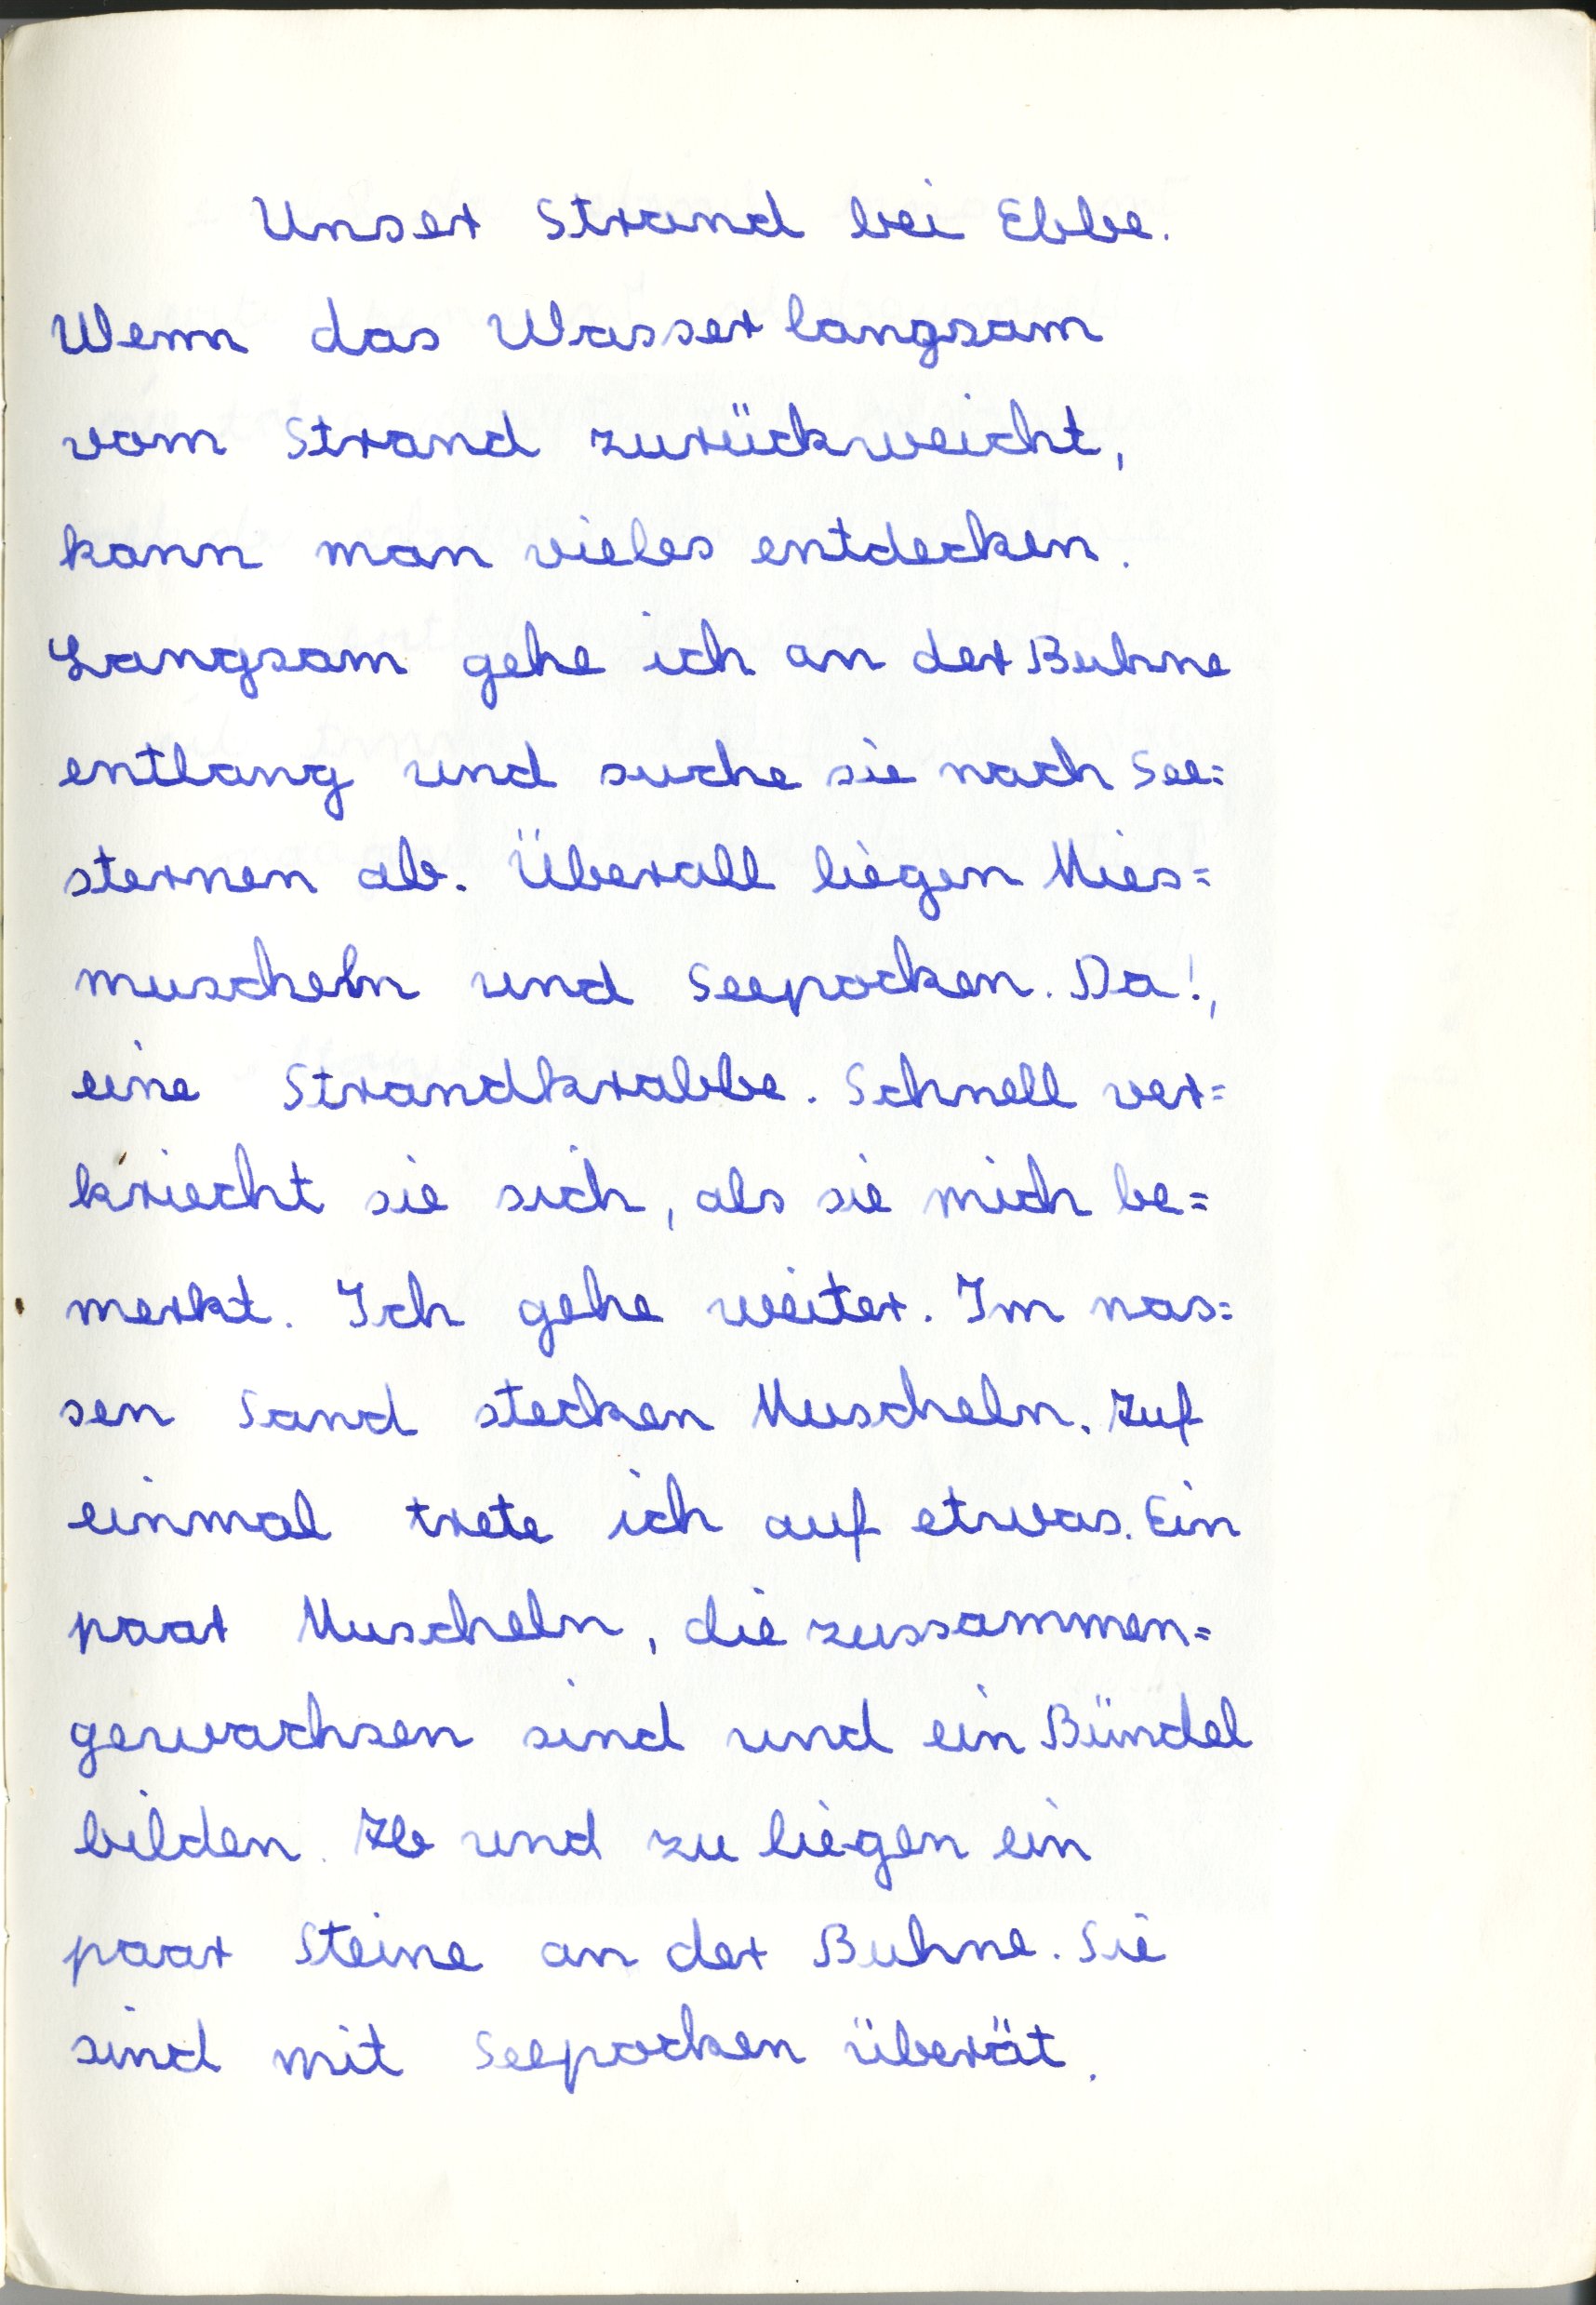 Unser Strand bei Ebbe.
Wenn das Wasser langsam
vom Strand zurückweicht,
kann man vieles entdecken.
Langsam gehe ich an der Buhne
entlang und suche sie nach See=
sternen ab. Überall liegen Mies=
muscheln und Seepocken. Da!,
eine Strandkrabbe. Schnell ver=
kriecht sie sich, als sie mich be=
merkt. Ich gehe weiter. Im nas=
sen Sand stecken Muscheln. Auf
einmal trete ich auf etwas. Ein
paar Muscheln, die zussammen=
gewachsen sind und ein Bündel
bilden. Ab und zu liegen ein
paar Steine an der Buhne. Sie
sind mit Seepocken überät.